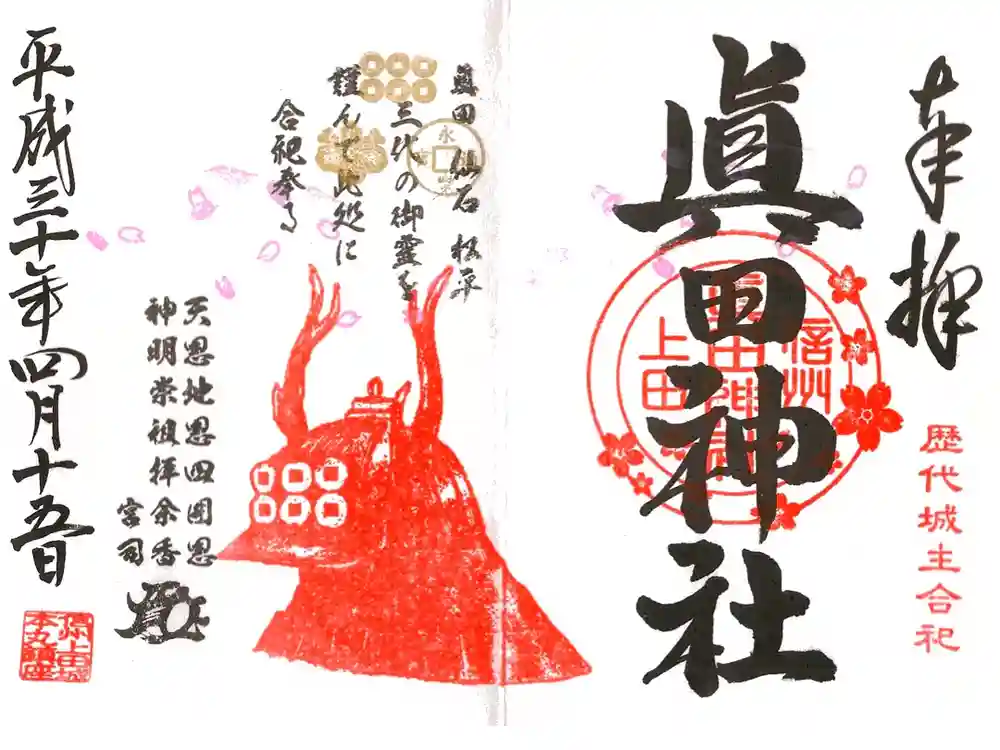 奉拝
歴代城主合祀
眞田神社
信州
上田
眞田 仙石 松平
三代の御霊を
謹んで此処に
合祀奉る
天恩地恩四国恩
神明崇祖拝余香
宮司
平成三十年四月十五日